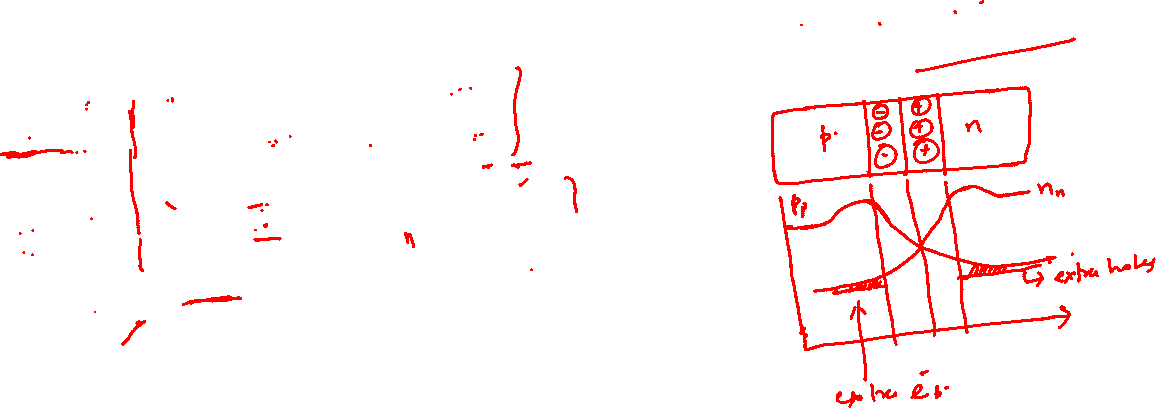 p
- + n
- +
- +
Pp
nn
→ extra holes
extra e's.